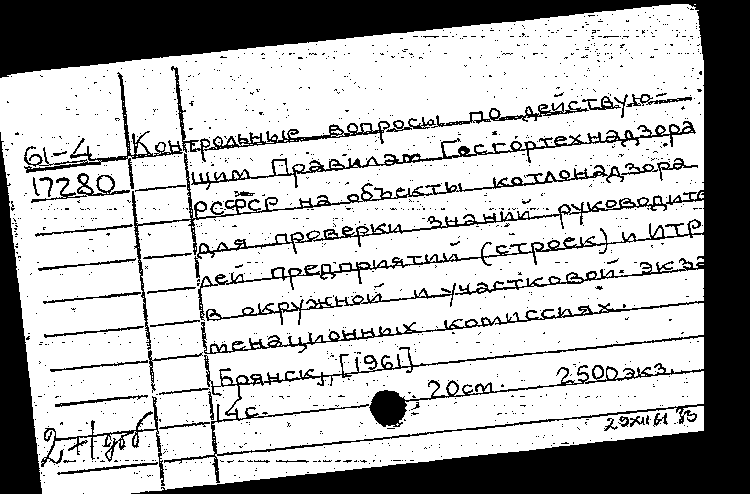 61-4
17280
Контрольные вопросы по действую-
щим Правилам Госгортехнадзора
РСФСР на объекты котлонадзора
для проверки знаний руководите
лей предприятий (строек) и ИТР
в окружной и участковой экза
менационных комиссиях.
[Брянск], [1961].
14 с. 20 см. 2500 экз.
2+1
29 XII 61